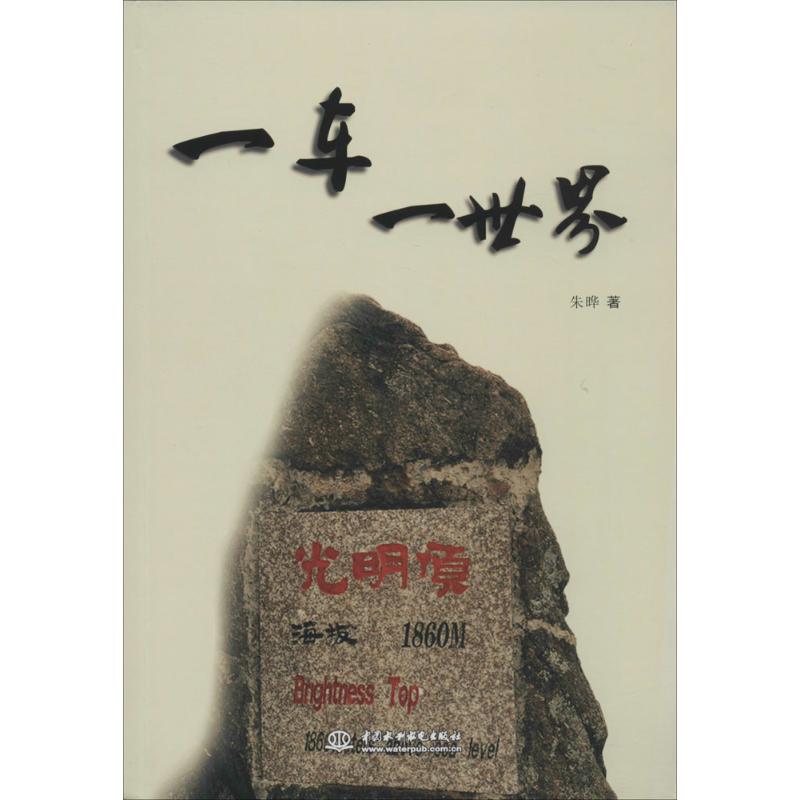 一车
一世界
朱晔 著
光明顶
海拔 1860M
Brightness Top
中国水利水电出版社
www.waterpub.com.cn
level